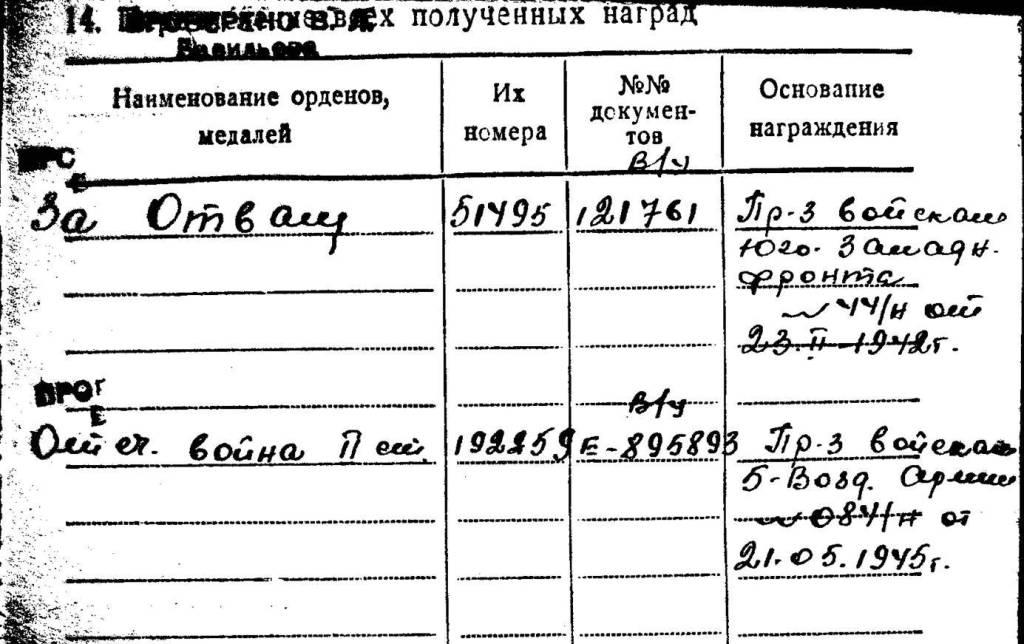 14. всех полученных наград
Наименование орденов,
медалей
Их
номера
№№
докумен-
тов
Основание
награждения
в/у
За Отвагу 51495 121761 Пр-з войскам
Юго-Западн.
фронта
44/н от
23.II-1942г.
в/у
Отеч. война II ст. 192259 Е-895893 Пр-з войскам
5-Возд. Армии
084/н от
21.05.1945г.